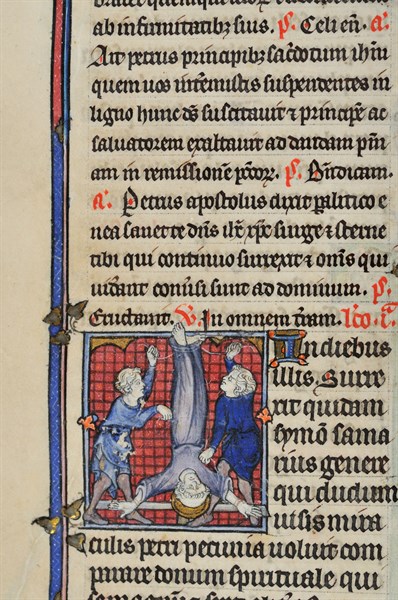 ab infirmitatibꝫ suis. p̄. Celi en̄. a͞.
Ait petrus principibꝫ sac̄dotum ih̄m
quem uos int̄emistis suspendentes in
ligno hunc dn̄s suscitauit ⁊ principē ac
saluatorem exaltauit ad dandam pn̄i
am in remissionē pc̄oꝝ. p̄. Bn̄dicam.
a͞. Petrus apostolus dixit paralitico e
nea sanet te dn̄s ih̄c xp̄c surge ⁊ sterne
tibi qui continuo surrexit ⁊ om̄s qui
uiderant conuersi sunt ad dominum. p̄.
Eructauit. V̄. In omnem t̄ram. lc̄o. i͞.
In diebus
illis. Surre
xit quidam
symon sama
rius genere
qui dudum
uisis mira
culis petri pecunia uoluit com
parare donum spirituale qui